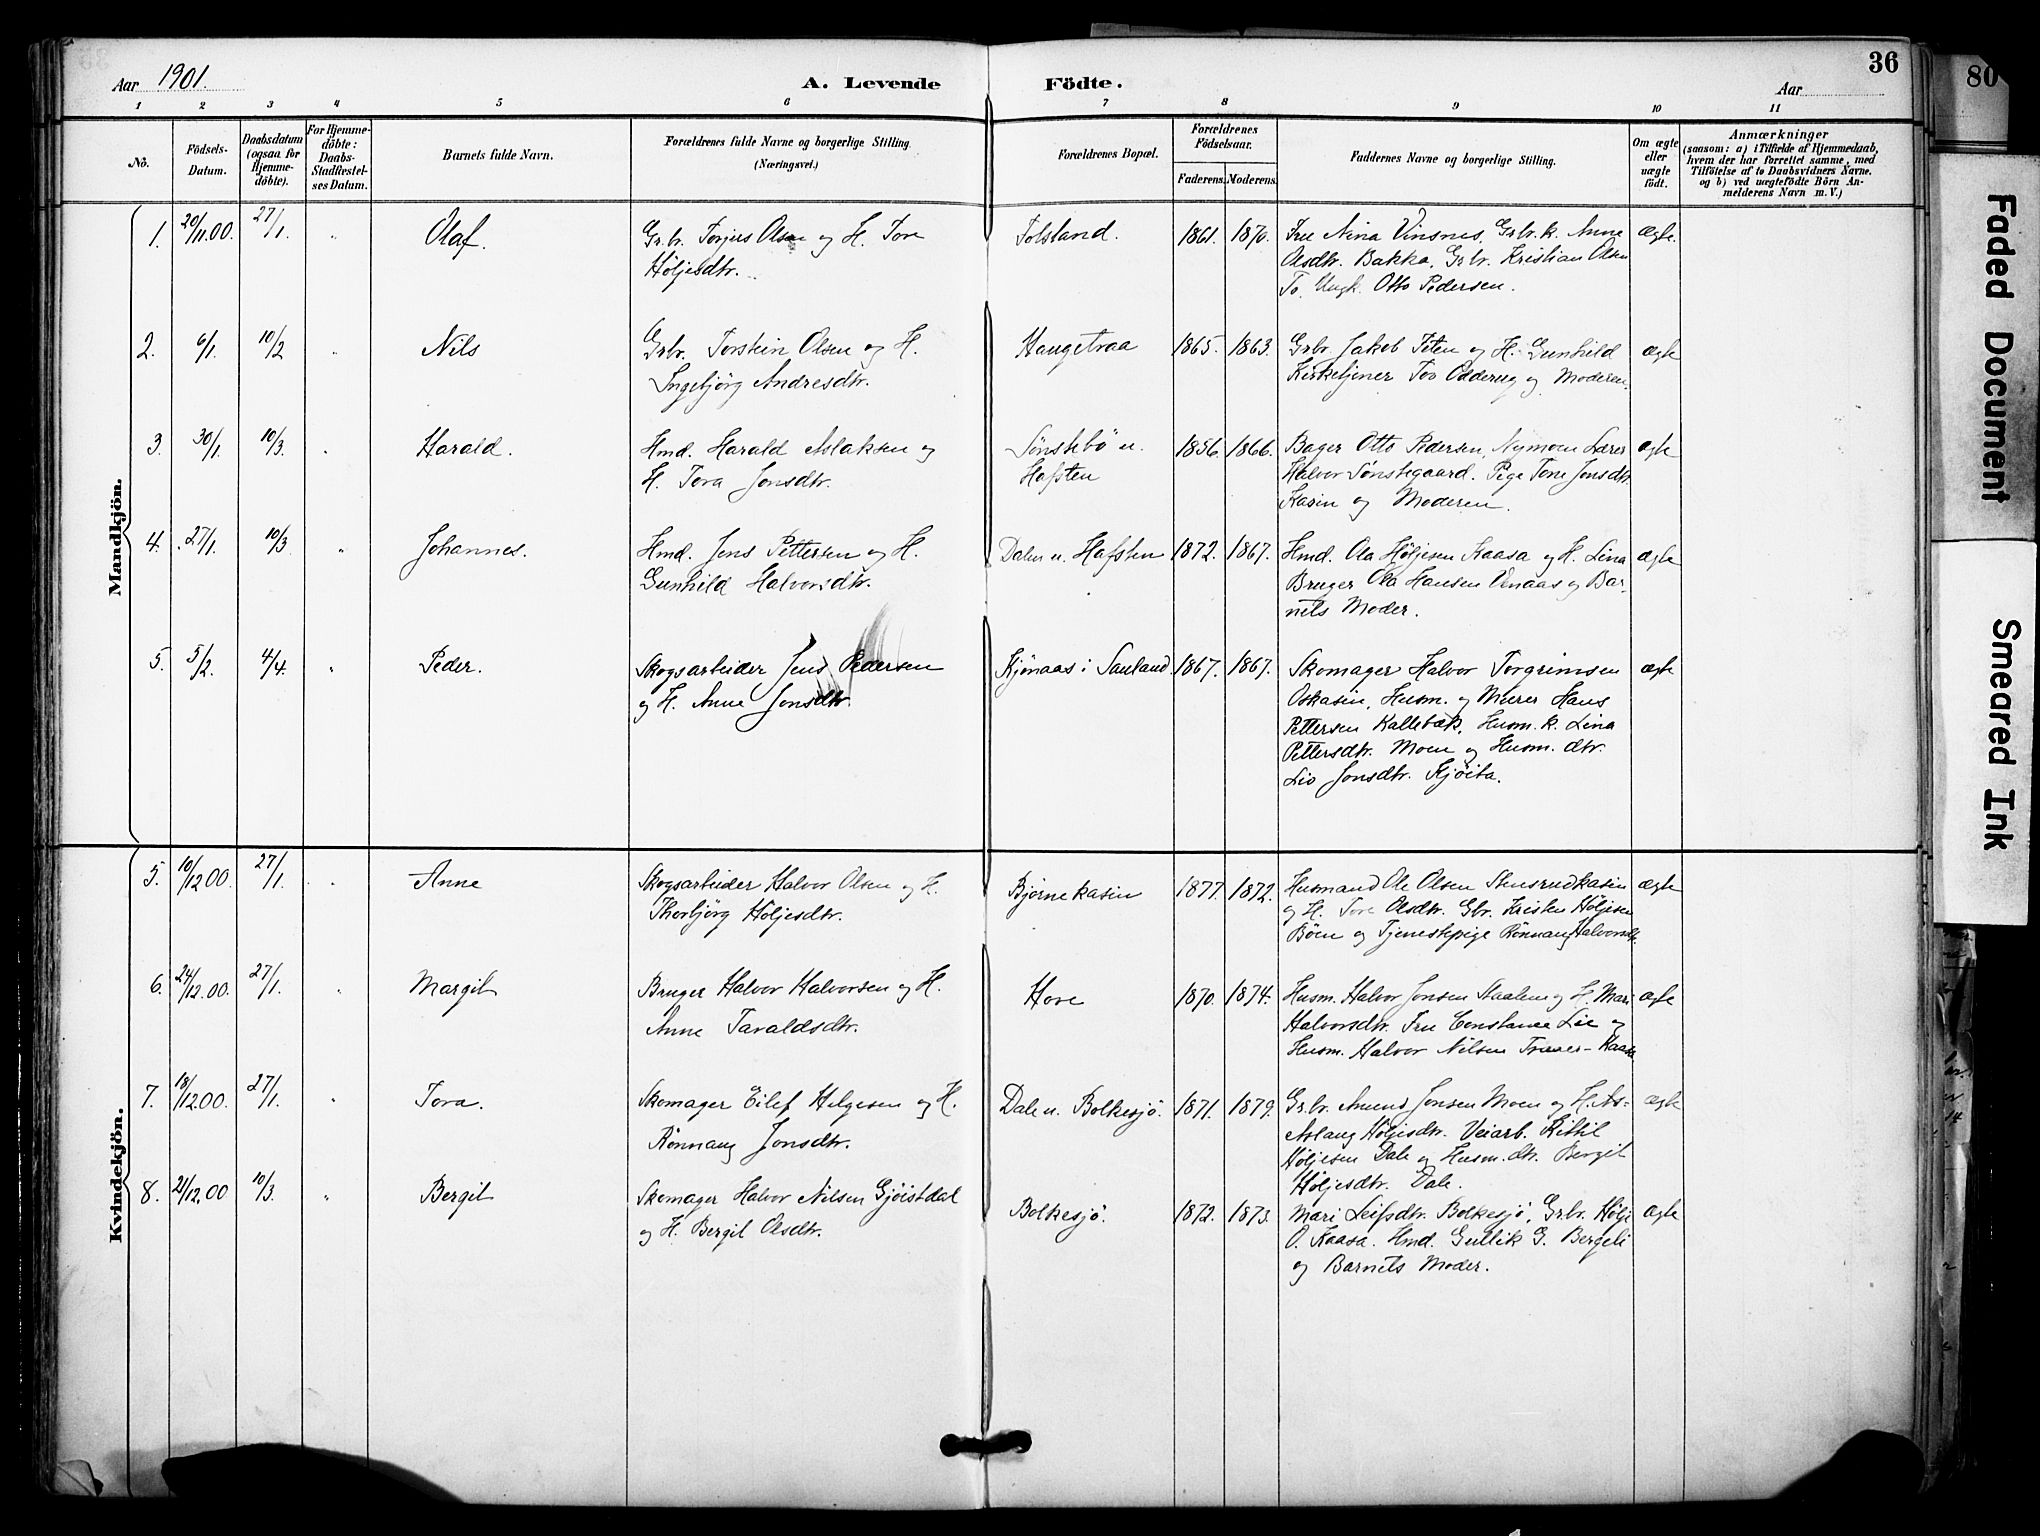 36
80
Aar 1901. A. Levende Födte. Aar
1 2 3 4 5 6 7 8 9 10 11
Nö.
Födsels-Datum.
Daabsdatum (ogsaa for Hjemme-döbte).
For Hjemme-döbte: Daabs-Stadfæstel-ses Datum.
Barnets fulde Navn.
Forældrenes fulde Navne og borgerlige Stilling.
(Næringsvei.)
Forældrenes Bopæl.
Forældrenes Födselsaar.
Faderens. Moderens.
Faddernes Navne og borgerlige Stilling.
Om ægte eller uægte födt.
Anmærkninger
(saasom: a) i Tilfælde af Hjemmedaab,
hvem der har forrettet samme, med
Tilföielse af to Daabsvidners Navne.
og b) ved uægtefödte Börn An-
melderens Navn m. V.)
Mandkjön.
1. 20/11.00. 27/1. " Olaf. Grbr. Torjus Olsen og H. Tore Tolstand. 1861. 1870. Fru Nina Vinsnes, Grbr. k. Anne ægte.
Höljesdtr. Olsdtr. Bakka, Grbr. Kristian Olsen
To. Ungk. Otto Pedersen.
2. 6/1. 10/2 " Nils Grbr. Torstein Olsen og H. Haugetraa 1865. 1863. Grbr. Jakob Teten og H. Gunhild ægte
Ingebjörg Andresdtr. Kirketjener Tov Odderug og Moderen.
3. 30/1. 10/3. " Harald. Hmd. Harald Aslaksen og Sönstebö u. 1856. 1866. Bager Otto Pedersen, Nymoen Lærer ægte
H. Tora Jonsdtr. Hafsten Halvor Sönstegaard. Pige Tone Jonsdtr.
Kasin og Moderen.
4. 27/1. 10/3. " Johannes. Hmd. Jens Pettersen og H. Dalen u. Hafsten 1872. 1867. Hmd. Ola Höljesen Kaasa og H. Lina ægte
Gunhild Halvorsdtr. Bruger Ola Hansen Venaas og Bar-
nets Moder.
5. 5/2. 4/4. " Peder. Skogsarbeider Jens Pedersen Kjönaas i Sauland 1867. 1867. Skomager Halvor Torgrimsen ægte
og H. Anne Jonsdtr. Oskasin, Husm. og Murer Hans
Pettersen Kallebæk, Husm. k. Lina
Pettersdtr. Moen og Husm. dtr.
Liv Jonsdtr. Kjöita.
Kvindekjön.
5. 10/12 00. 27/1. " Anne Skogsarbeider Halvor Olsen og H. Bjørnekasin 1877. 1872. Husmand Ole Olsen Stensrudkasin ægte
Thorbjörg Höljesdtr. og H. Tore Olsdtr. Gbr. Kristen Höljesen
Böen og Tjenestepige Rönnaug Halvorsdtr.
6. 24/12.00. 27/1. " Margit Bruger Halvor Halvorsen og H. Hove 1870. 1874. Husm. Halvor Jonsen Staalen og H. Mari ægte
Anne Taraldsdtr. Halvorsdtr. Fru Constance Lie og
Husm. Halvor Nilsen Kaasa
7. 18/12 00. 27/1. " Tora. Skomager Eilef Helgesen og H. Dale u. Bolkesjö. 1871. 1879. Grbr. Amund Jonsen Moen og H. As- ægte
Rönnaug Jonsdtr. Aslaug Höljesdtr. Veiarb. Kittil
Höljesen Dale og Husm. dtr. Bergit
Höljesdtr. Dale.
8. 21/12.00 10/3. " Bergit Skomager Halvor Nilsen Gjöistdal Bolkesjö. 1872. 1873. Mari Leifsdtr. Bolkesjö, Grbr. Hölje ægte
og H. Bergit Olsdtr. O. Kaasa. Hmd. Gullik G. Bergeli
og Barnets Moder.
Faded Document
Smeared Ink